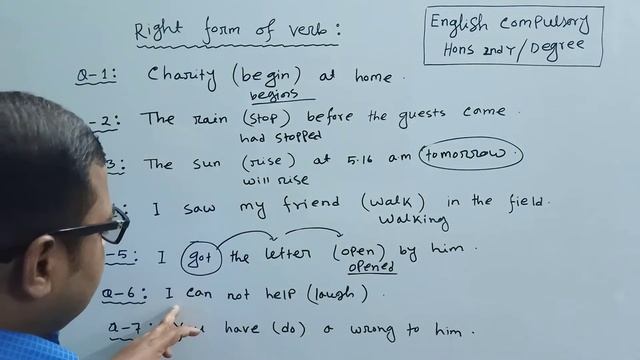 Right form of verb:
English Compulsory
Hons 2nd Y/Degree
Q-1: Charity (begin) at home.
begins
-2: The rain (stop) before the guests came.
had stopped
3: The sun (rise) at 5.16 am tomorrow.
will rise
: I saw my friend (walk) in the field.
walking
-5: I got the letter (open) by him.
opened
Q-6: I can not help (laugh).
Q-7: You have (do) a wrong to him.